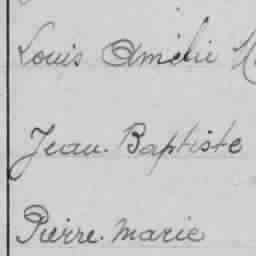 Louis Amélie
Jean-Baptiste
Pierre-Marie